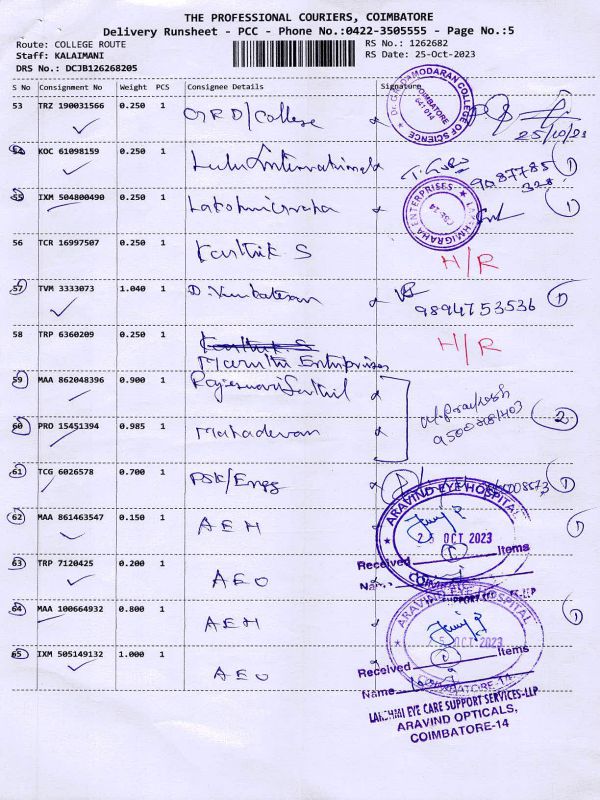 THE PROFESSIONAL COURIERS, COIMBATORE
Delivery Runsheet - PCC - Phone No.:0422-3505555 - Page No.:5
Route: COLLEGE ROUTE
Staff: KALAIMANI
DRS No.: DCJB126268205
RS No.: 1262682
RS Date: 25-Oct-2023
S No Consignment No Weight PCS Consignee Details Signature
53 TRZ 190031566 0.250 1 GRD/College
Dr. G.R. DAMODARAN COLLEGE OF SCIENCE
COIMBATORE
641 014
54 KOC 61098159 0.250 1 Lulu International 1
55 IXM 504800490 0.250 1 Lakshmigraha 1
LAKSHMIGRAHA ENTERPRISES
CBE-14
56 TCR 16997507 0.250 1 Karthik S H/R
57 TVM 3333073 1.040 1 D. Venkatesan 9894753536 1
58 TRP 6360209 0.250 1 Karthik S H/R
Maruthi Enterprises
59 MAA 862048396 0.900 1 Rajeswari Senthil
60 PRO 15451394 0.985 1 Mahadevan 2
61 TCG 6026578 0.700 1 PSK/Engg 1
62 MAA 861463547 0.150 1 AEH 1
ARAVIND EYE HOSPITAL
25 OCT 2023
Received 1 Items
63 TRP 7120425 0.200 1 AEO
64 MAA 100664932 0.800 1 AEH 1
ARAVIND EYE HOSPITAL
25 OCT 2023
65 IXM 505149132 1.000 1 AEO
Received 1 Items
Name
COIMBATORE-14
LAKSHMI EYE CARE SUPPORT SERVICES-LLP
ARAVIND OPTICALS,
COIMBATORE-14